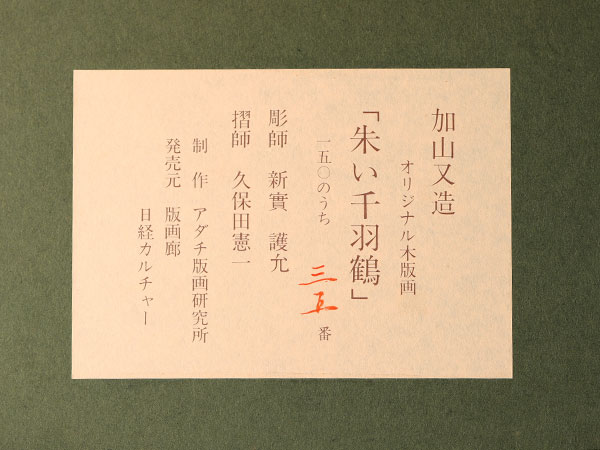 加山又造
オリジナル木版画
「朱い千羽鶴」
一五〇のうち 三五 番
彫師 新實 護允
摺師 久保田憲一
制作 アダチ版画研究所
発売元 版画廊
日経カルチャー